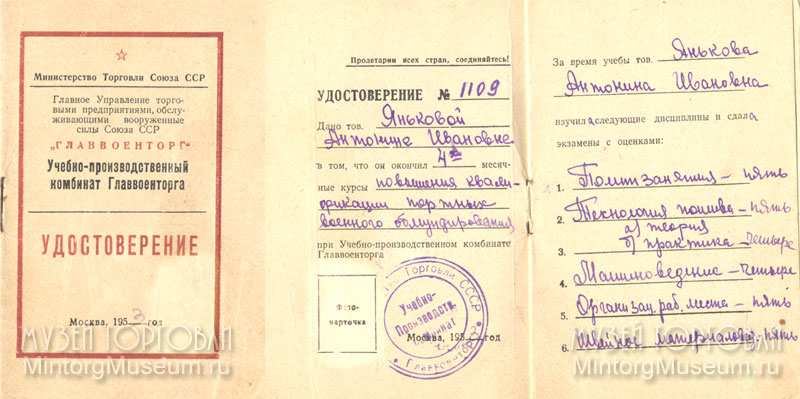 Министерство Торговли Союза ССР
Главное Управление торго-
выми предприятиями, обслу-
живающими вооруженные
силы Союза ССР
"ГЛАВВОЕНТОРГ"
Учебно-производственный
комбинат Главвоенторга
УДОСТОВЕРЕНИЕ
Москва, 1953 год
Пролетарии всех стран, соединяйтесь!
УДОСТОВЕРЕНИЕ № 1109
Дано тов. Яньковой
Антонине Ивановне
в том, что он окончил 4х месяч-
ные курсы повышения квали-
фикации портных
военного обмундирования
при Учебно-производственном комбинате
Главвоенторга
Фото-
карточка
Торговли СССР
Учебно-
Производств.
комбинат
Главвоенторг
Москва, 195 год
За время учебы тов. Янькова
Антонина Ивановна
изучила следующие дисциплины и сдала
экзамены с оценками:
1. Политзанятия - пять
2. Технология пошива - пять
а) теория
3. б) практика - четыре
4. Машиноведение - четыре
5. Организац. раб. места - пять
6. Швейное материаловед. - пять
МУЗЕЙ ТОРГОВЛИ
MintorgMuseum.ru
МУЗЕЙ ТОРГОВЛИ
MintorgMuseum.ru